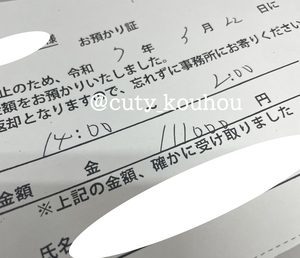 様 お預かり証
止のため、令和 7 年 3 月 22 日に
金額をお預かりいたしました。
返却となりますで、忘れずに事務所にお寄りください
@cuty_kouhou
14:00 2:00
金額 金 111000 円
※上記の金額、確かに受け取りました
氏名